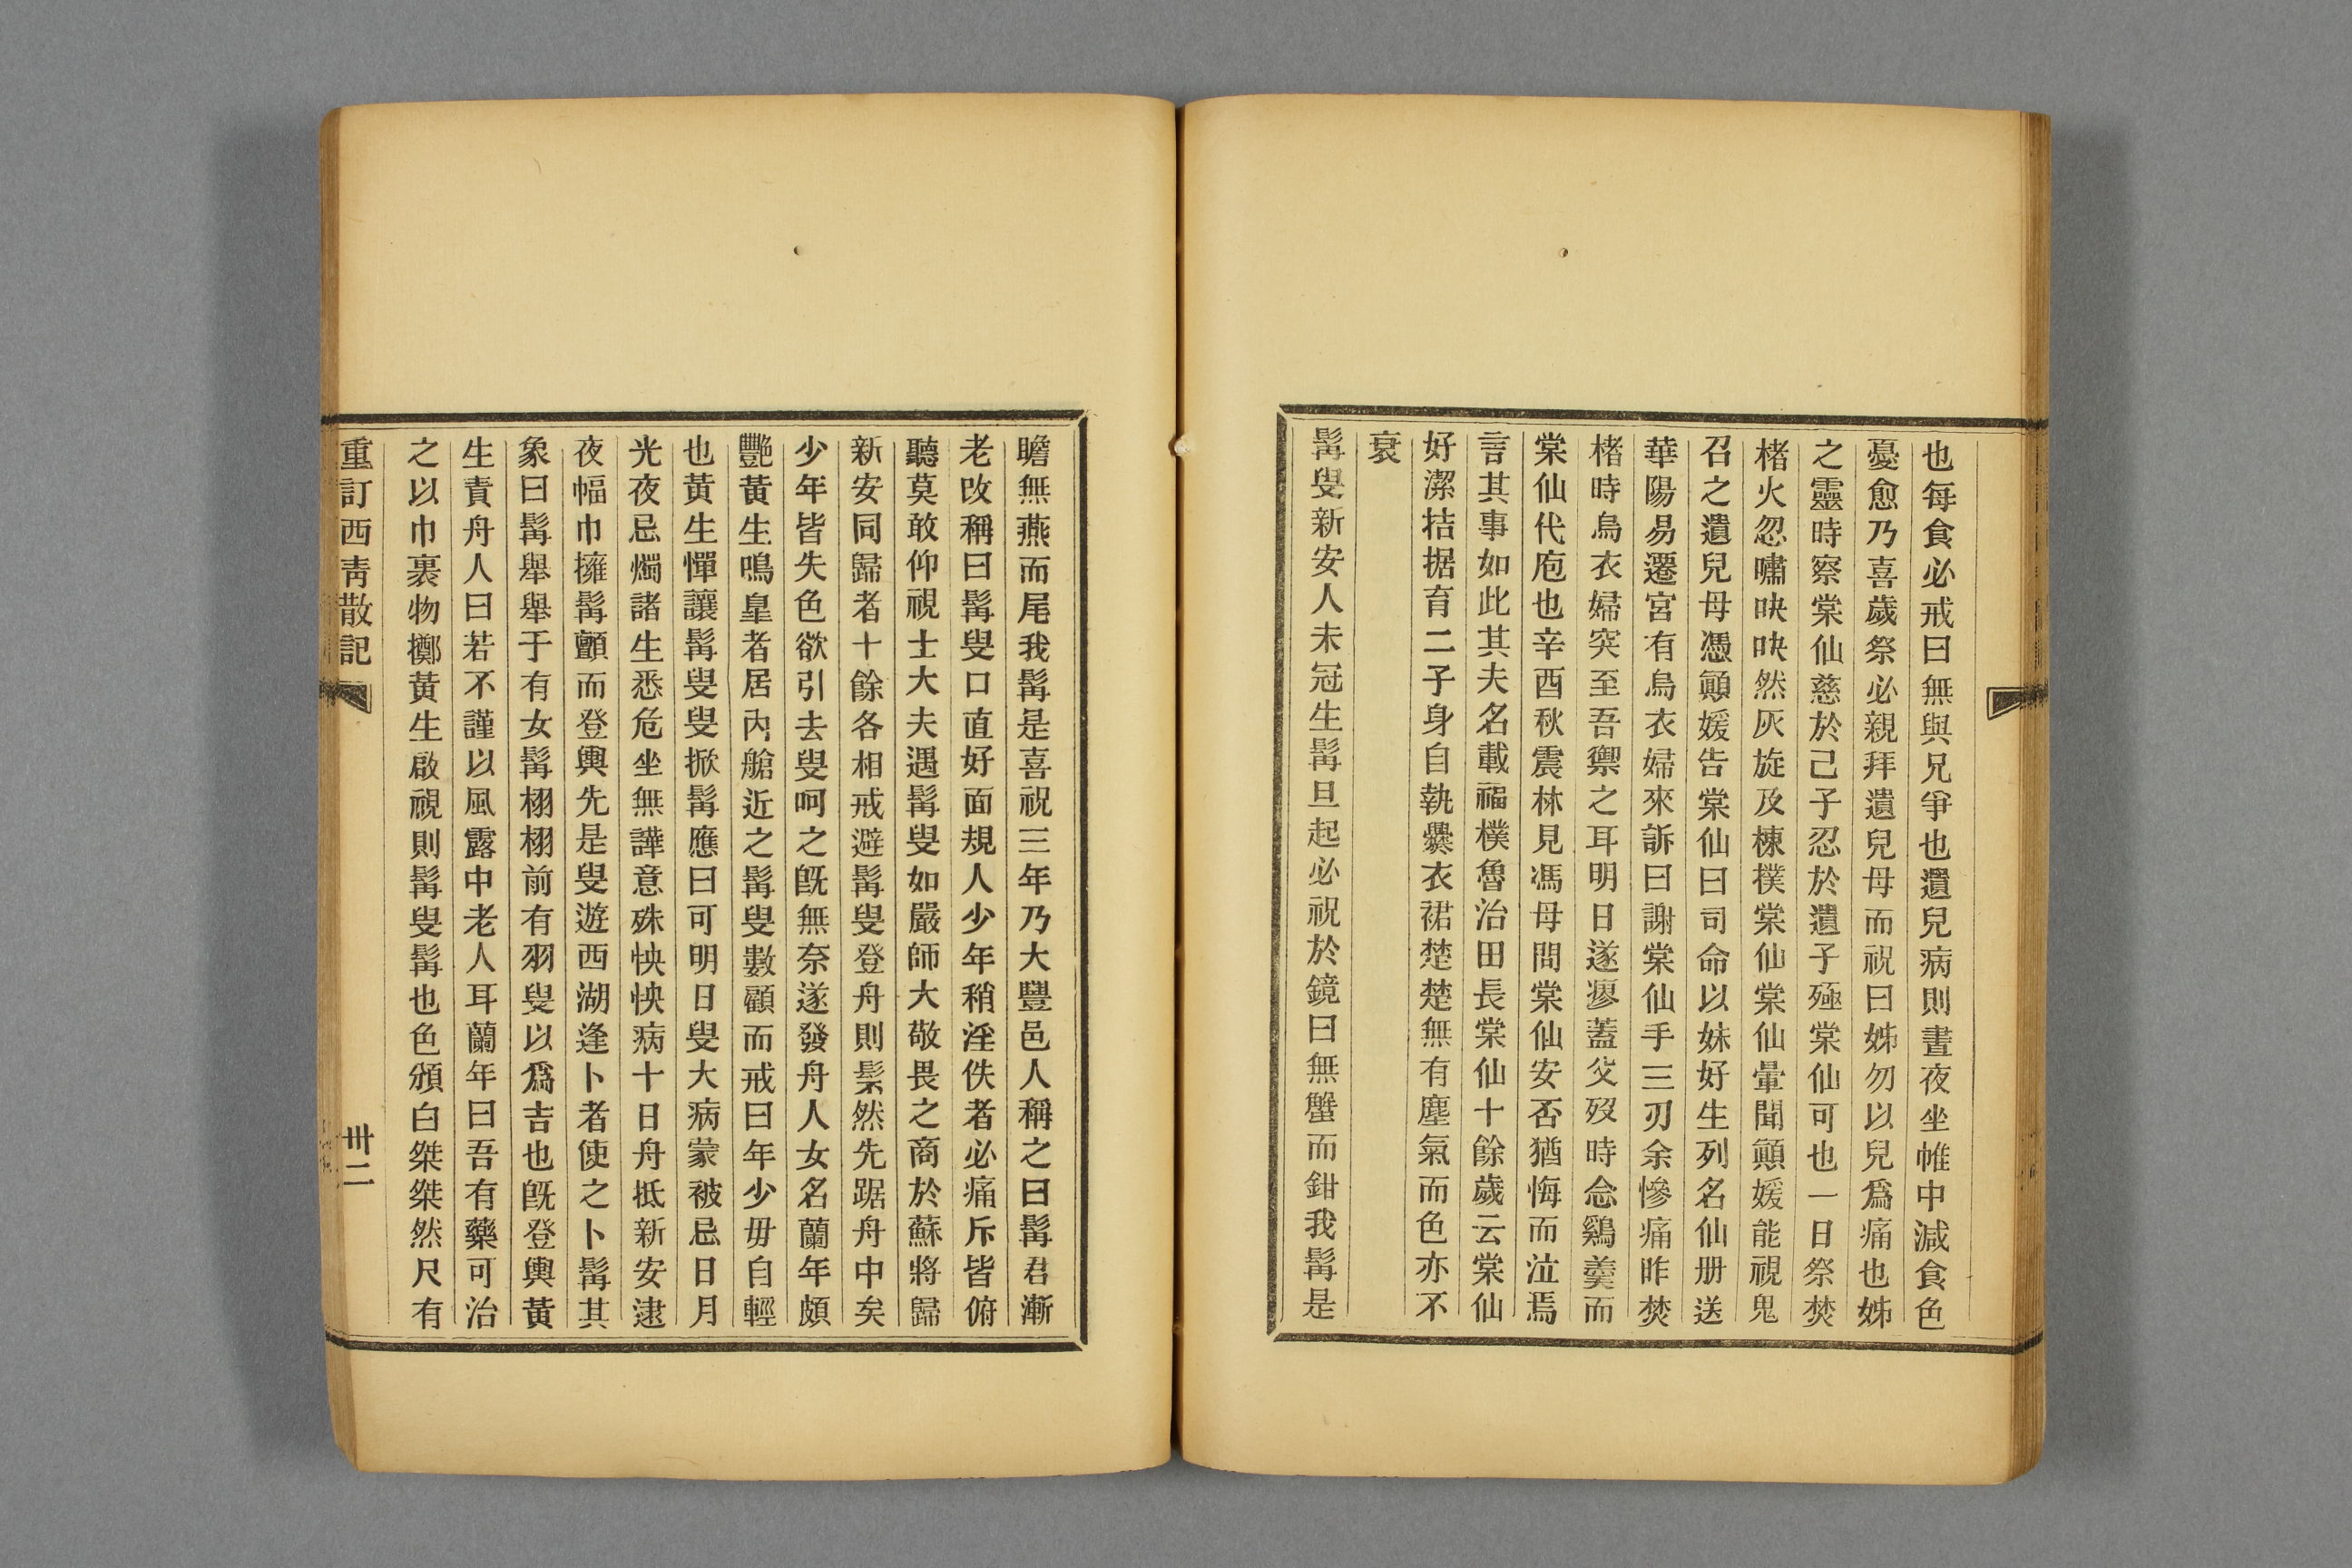 也每食必戒曰無與兄爭也遺兒病則晝夜坐帷中減食色
憂愈乃喜歲祭必親拜遺兒母而祝曰姊勿以兒爲痛也姊
之靈時察棠仙慈於己子忍於遺子殛棠仙可也一日祭焚
楮火忽嘯吷吷然灰旋及棟撲棠仙棠仙暈聞顚媛能視鬼
召之遺兒母憑顚媛告棠仙曰司命以妹好生列名仙册送
華陽易遷宮有烏衣婦來訴曰謝棠仙手三刃余慘痛昨焚
楮時烏衣婦突至吾禦之耳明日遂瘳蓋父歿時念鷄羹而
棠仙代庖也辛酉秋震林見馮母問棠仙安否猶悔而泣焉
言其事如此其夫名載福樸魯治田長棠仙十餘歲云棠仙
好潔拮据育二子身自執爨衣裙楚楚無有塵氣而色亦不
衰
髯叟新安人未冠生髯旦起必祝於鏡曰無蟹而鉗我髯是
瞻無燕而尾我髯是喜祝三年乃大豐邑人稱之曰髯君漸
老改稱曰髯叟口直好面規人少年稍淫佚者必痛斥皆俯
聽莫敢仰視士大夫遇髯叟如嚴師大敬畏之商於蘇將歸
新安同歸者十餘各相戒避髯叟登舟則䰄然先踞舟中矣
少年皆失色欲引去叟呵之旣無奈遂發舟人女名蘭年頗
艷黃生鳴皐者居內艙近之髯叟數顧而戒曰年少毋自輕
也黃生憚讓髯叟叟掀髯應曰可明日叟大病蒙被忌日月
光夜忌燭諸生悉危坐無譁意殊怏怏病十日舟抵新安逮
夜幅巾擁髯顫而登輿先是叟遊西湖逢卜者使之卜髯其
象曰髯舉舉于有女髯栩栩前有羽叟以爲吉也旣登輿黃
生責舟人曰若不謹以風露中老人耳蘭年曰吾有藥可治
之以巾裹物擲黃生啟視則髯叟髯也色頒白桀桀然尺有
重訂西靑散記
卅二